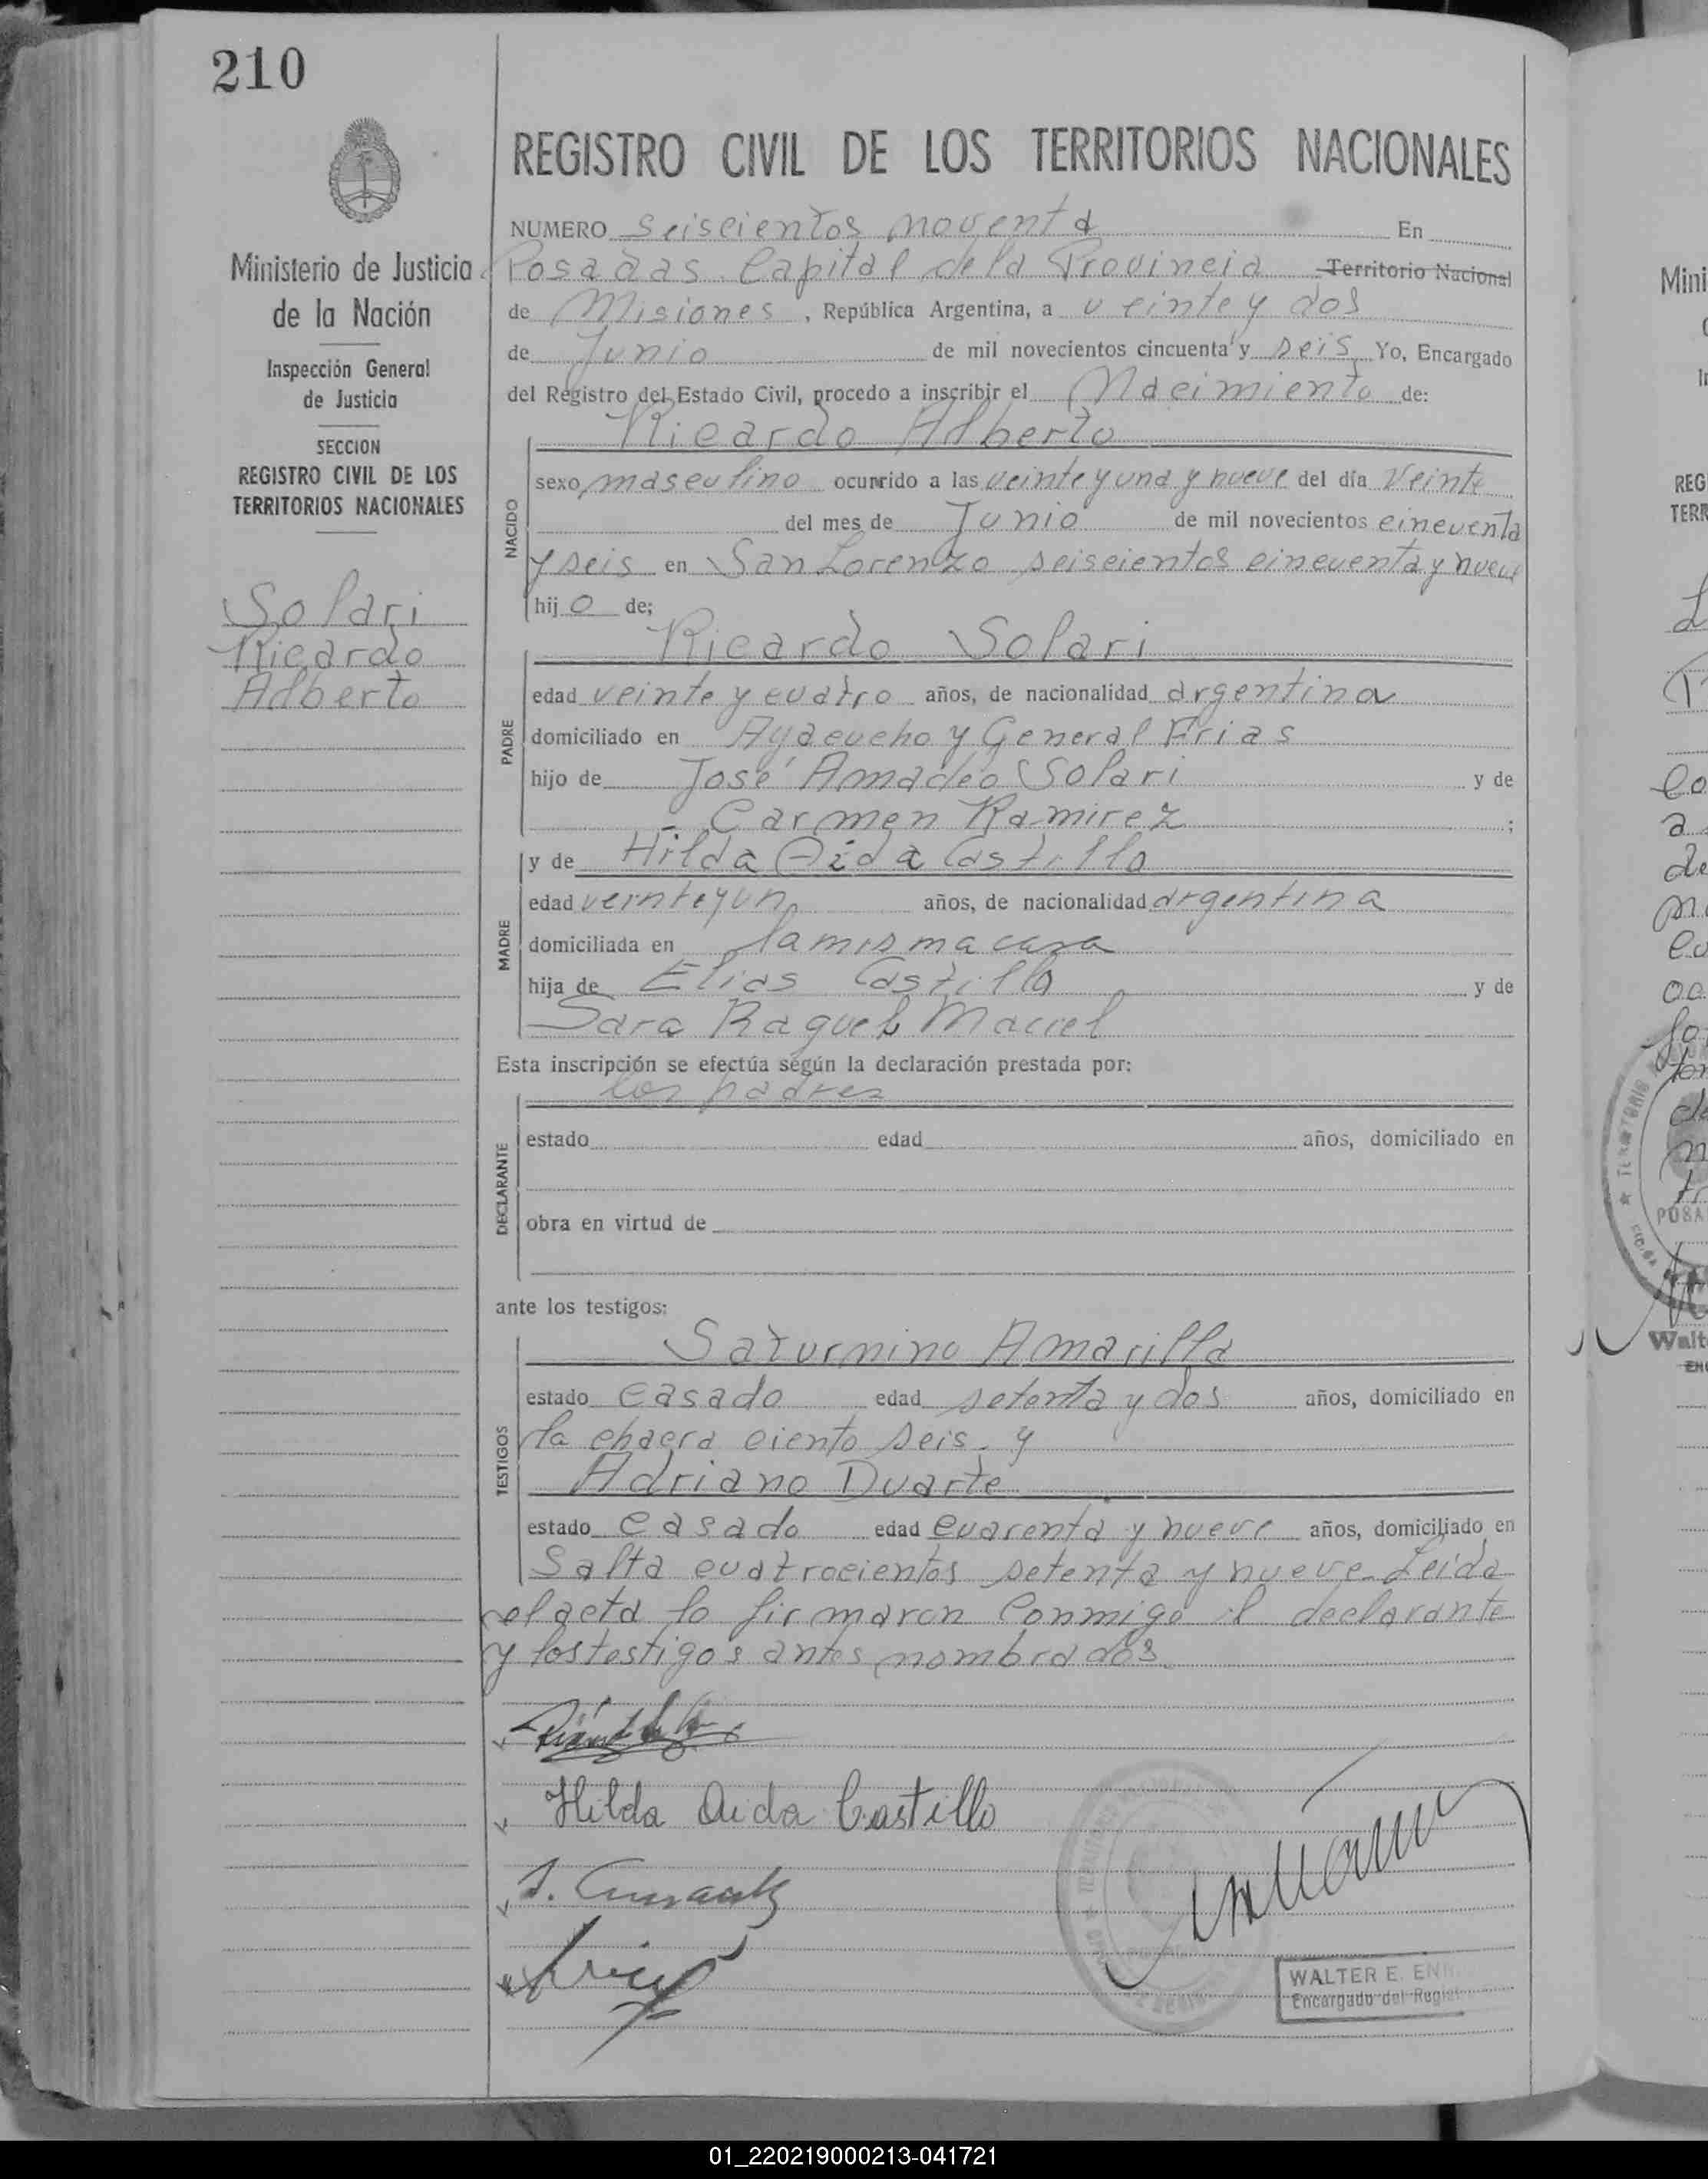 210
REGISTRO CIVIL DE LOS TERRITORIOS NACIONALES
Ministerio de Justicia
de la Nación
Inspección General
de Justicia
SECCION
REGISTRO CIVIL DE LOS
TERRITORIOS NACIONALES
Solari
Ricardo
Alberto
NUMERO seiscientos noventa En
Posadas Capital de la Provincia Territorio Nacional
de Misiones, República Argentina, a veinte y dos
de Junio de mil novecientos cincuenta y seis Yo, Encargado
del Registro del Estado Civil, procedo a inscribir el Nacimiento de:
Ricardo Alberto
NACIDO
sexo masculino ocurrido a las veinte y una y nueve del día Veinte
del mes de Junio de mil novecientos cincuenta
y seis en San Lorenzo seiscientos cincuenta y nueve
hijo de;
Ricardo Solari
PADRE
edad veinte y cuatro años, de nacionalidad argentina
domiciliado en Ayacucho y General Frias
hijo de José Amadeo Solari y de
Carmen Ramirez ;
MADRE
y de Hilda Aida Castillo
edad veinte y un años, de nacionalidad argentina
domiciliada en la misma casa
hija de Elias Castillo y de
Sara Raquel Maciel
Esta inscripción se efectúa según la declaración prestada por:
los padres
DECLARANTE
estado edad años, domiciliado en
obra en virtud de
ante los testigos:
Saturnino Amarilla
TESTIGOS
estado casado edad setenta y dos años, domiciliado en
la chacra ciento seis y
Adriano Duarte
estado casado edad cuarenta y nueve años, domiciliado en
Salta cuatrocientos setenta y nueve. Leida
el acta la firmaron conmigo el declarante
y los testigos antes nombrados.
Hilda Aida Castillo
WALTER E.
Encargado del
01_220219000213-041721